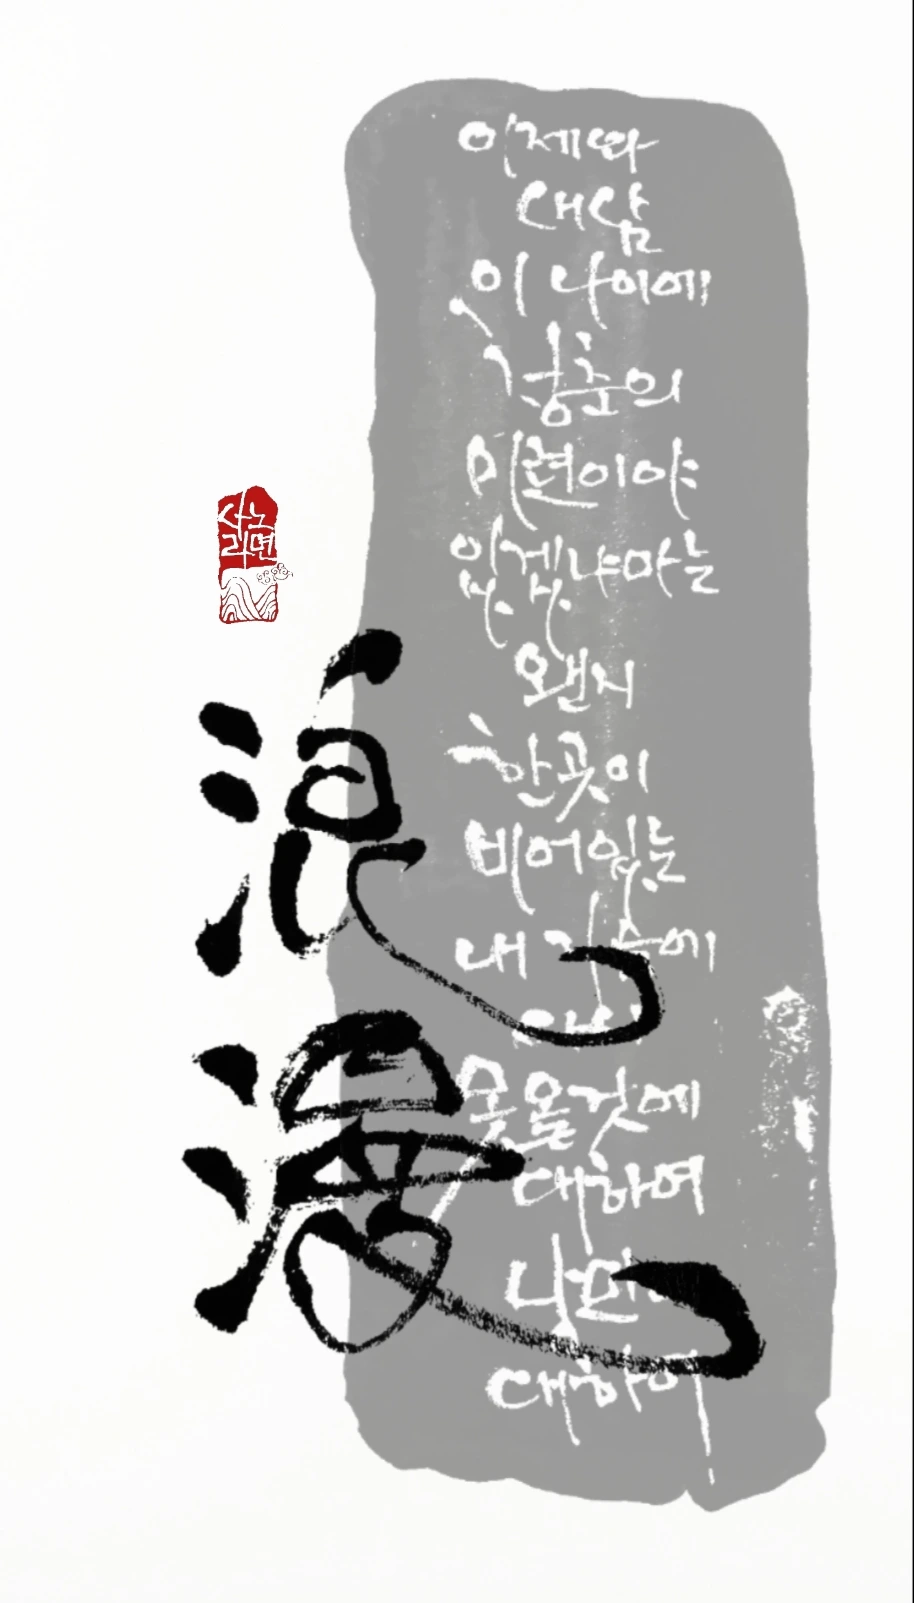 이제와
새삼
이 나이에
청춘의
미련이야
있겠냐마는
왠지
한곳이
비어있는
내 가슴에
못올것에
대하여
낭만에
대하여
사노
라면
浪漫